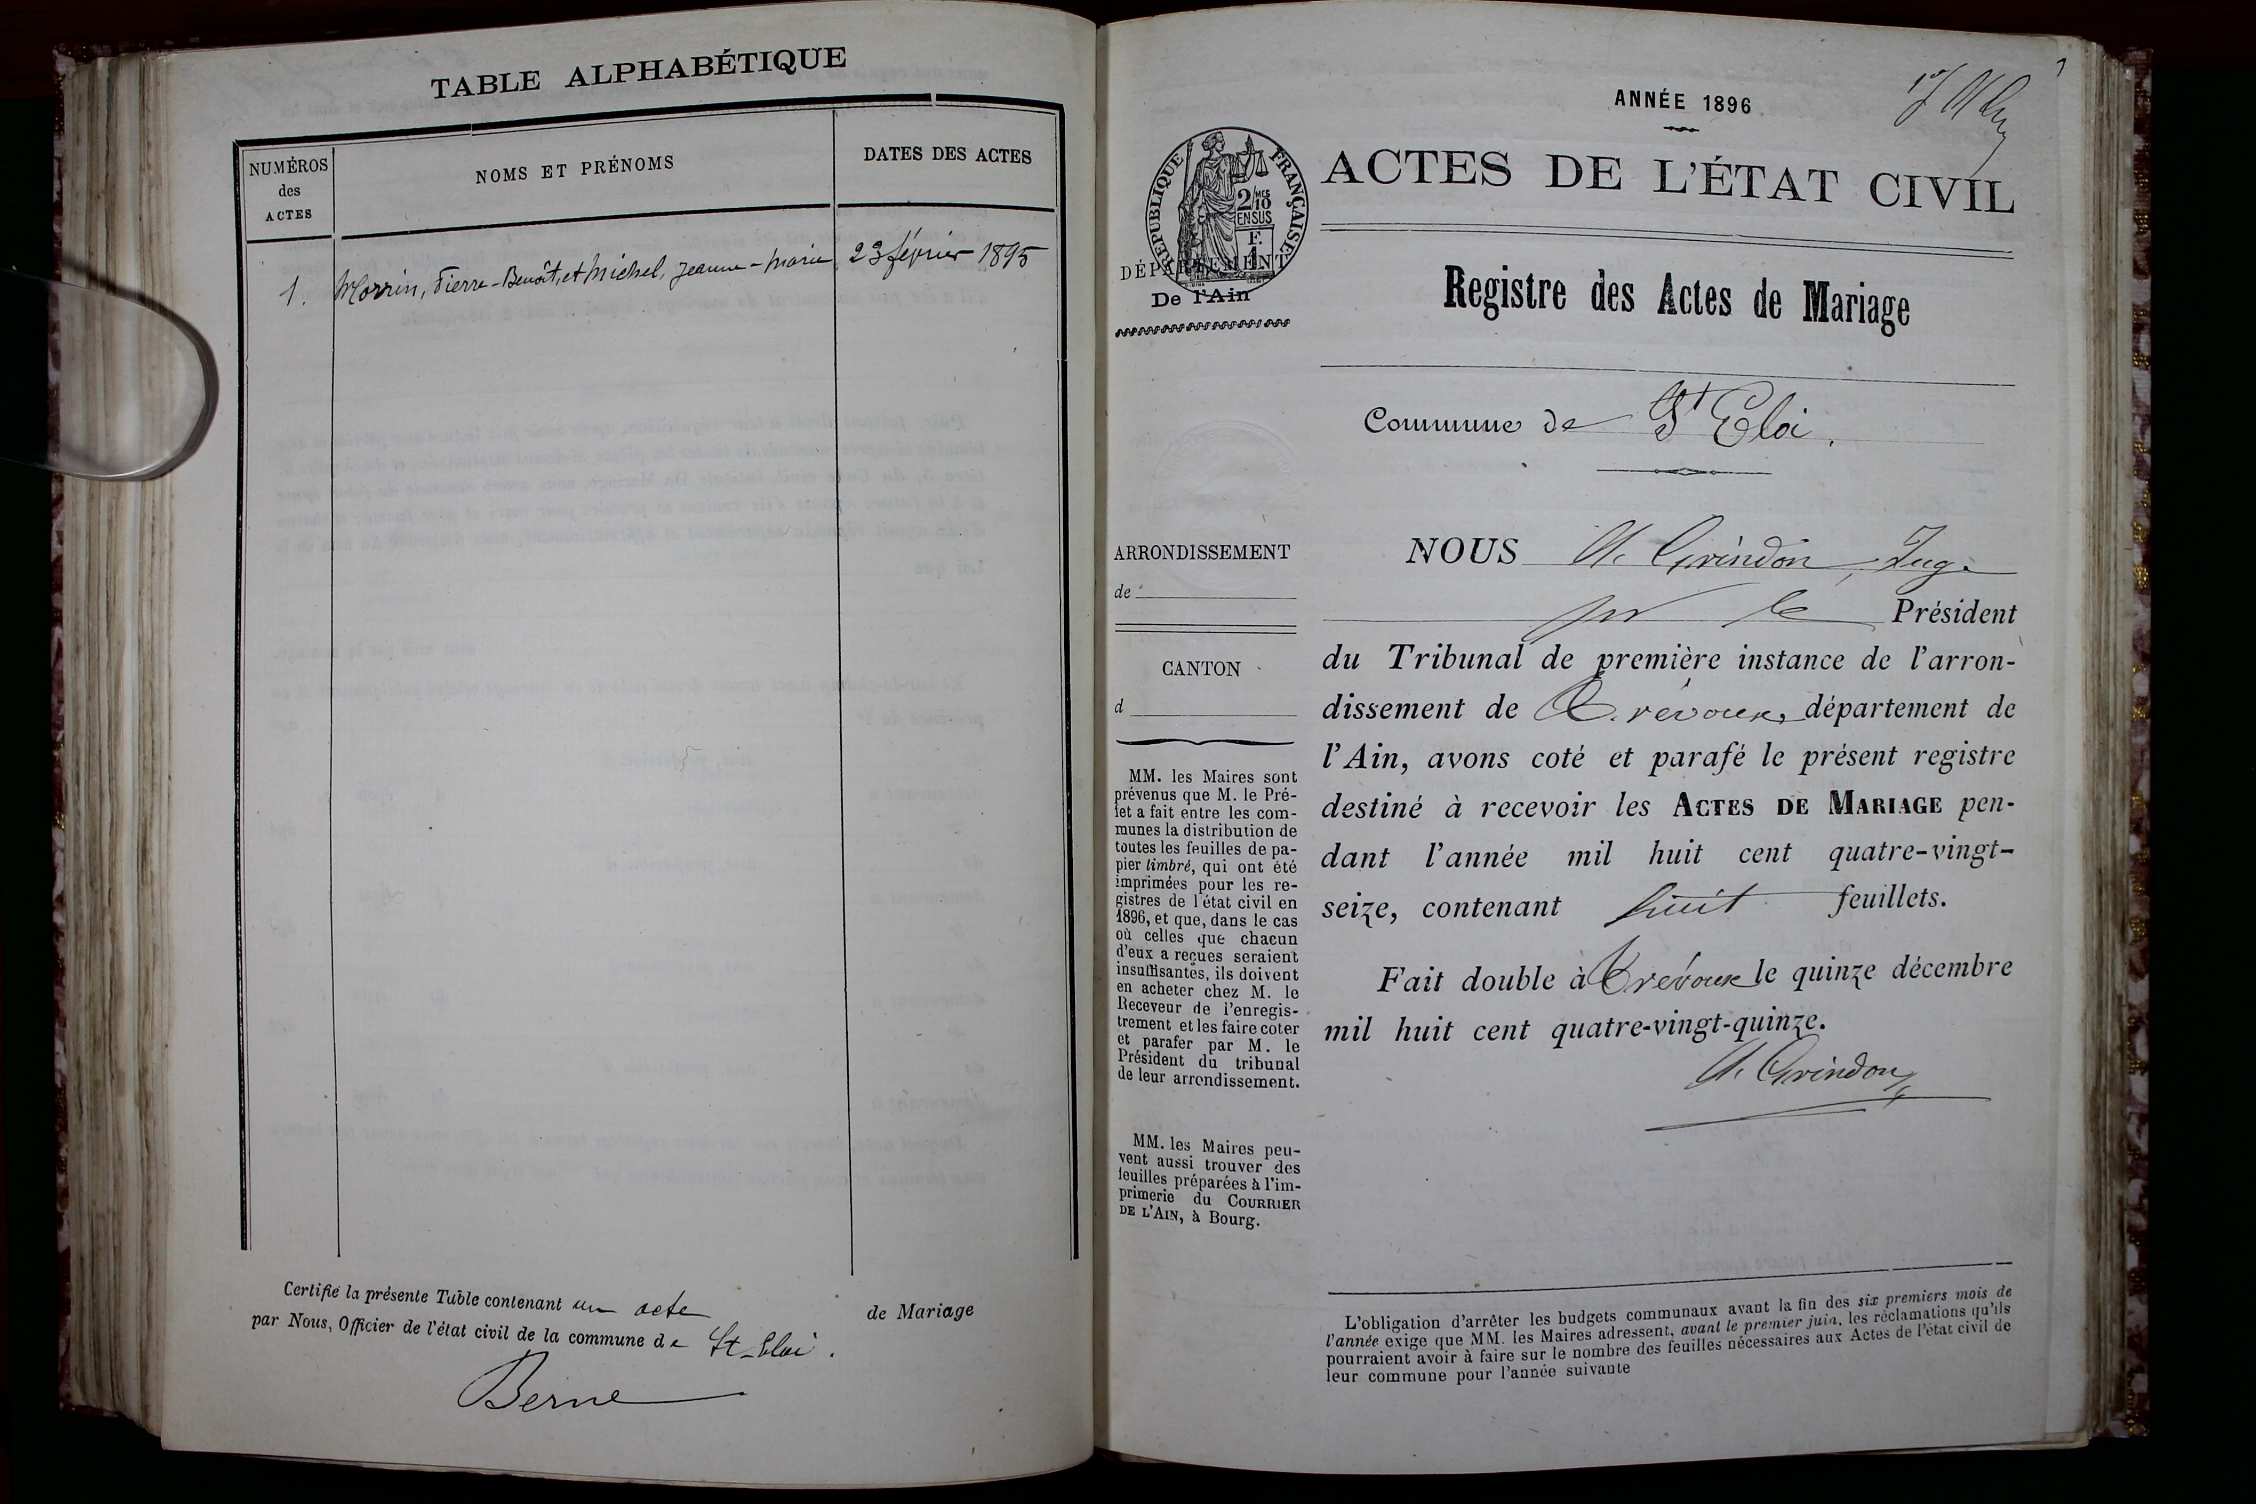 TABLE ALPHABÉTIQUE
NUMÉROS
des
ACTES
NOMS ET PRÉNOMS
DATES DES ACTES
1. Morrin, Pierre-Benoît, et Michel, Jeanne-Marie 23 février 1895
Certifié la présente Table contenant un acte de Mariage
par Nous, Officier de l'état civil de la commune de St-Eloi.
Berne
ANNÉE 1896
RÉPUBLIQUE FRANÇAISE
2/10
MES
EN SUS
F.
1
DÉPARTEMENT
De l'Ain
ACTES DE L'ÉTAT CIVIL
Registre des Actes de Mariage
Commune de St Eloi.
ARRONDISSEMENT
de
CANTON
d
MM. les Maires sont
prévenus que M. le Pré-
fet a fait entre les com-
munes la distribution de
toutes les feuilles de pa-
pier timbré, qui ont été
imprimées pour les re-
gistres de l'état civil en
1896, et que, dans le cas
où celles que chacun
d'eux a reçues seraient
insuffisantes, ils doivent
en acheter chez M. le
Receveur de l'enregis-
trement et les faire coter
et parafer par M. le
Président du tribunal
de leur arrondissement.
MM. les Maires peu-
vent aussi trouver des
feuilles préparées à l'im-
primerie du COURRIER
DE L'AIN, à Bourg.
NOUS A. Grindon, Juge
pr le Président
du Tribunal de première instance de l'arron-
dissement de Trévoux, département de
l'Ain, avons coté et parafé le présent registre
destiné à recevoir les ACTES DE MARIAGE pen-
dant l'année mil huit cent quatre-vingt-
seize, contenant huit feuillets.
Fait double à Trévoux le quinze décembre
mil huit cent quatre-vingt-quinze.
A. Grindon
L'obligation d'arrêter les budgets communaux avant la fin des six premiers mois de
l'année exige que MM. les Maires adressent, avant le premier juin, les réclamations qu'ils
pourraient avoir à faire sur le nombre des feuilles nécessaires aux Actes de l'état civil de
leur commune pour l'année suivante